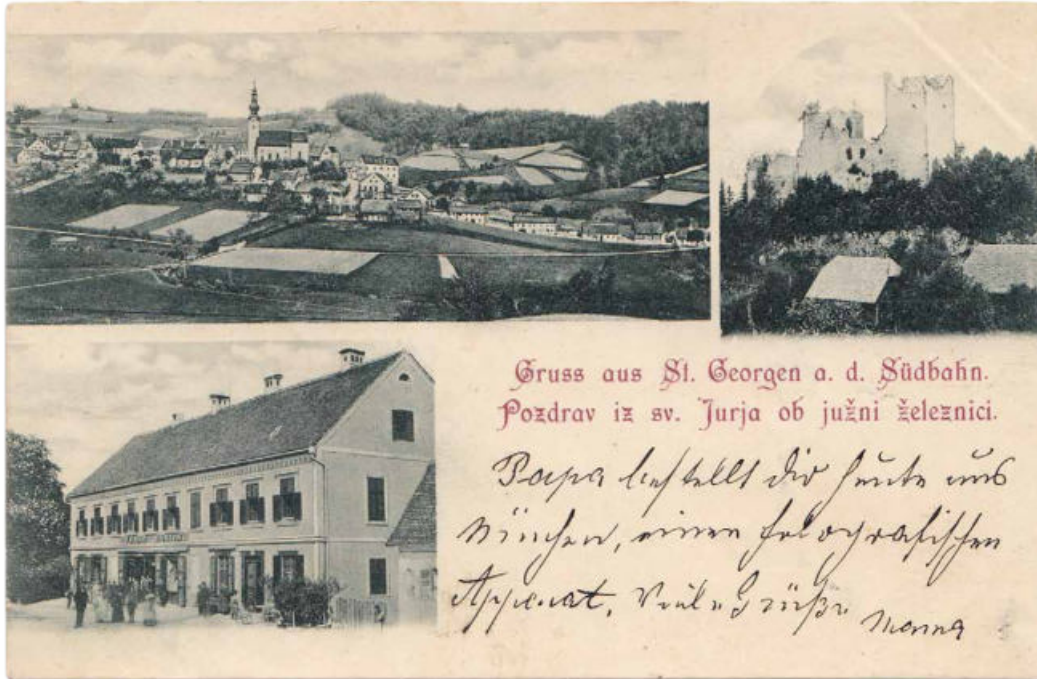 Gruss aus St. Georgen a. d. Südbahn.
Pozdrav iz sv. Jurja ob južni železnici.
Papa bestellt dir heute aus
München, einen fotografischen
Apparat. Viele Grüße
Mama